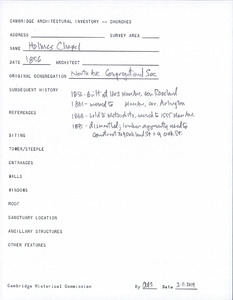 CAMBRIDGE ARCHITECTURAL INVENTORY -- CHURCHES
ADDRESS SURVEY AREA
NAME Holmes Chapel
DATE 1856 ARCHITECT
ORIGINAL CONGREGATION North Ave Congregational Soc
SUBSEQUENT HISTORY
1856 - Built at Mass Ave, cor. Roseland
1861 - moved to Ave, cor. Arlington
1868 - sold to Methodists, moved to Ave
REFERENCES
1891 - dismantled; lumber apparently used to
construct Oak St
SITING
TOWER/STEEPLE
ENTRANCES
WALLS
WINDOWS
ROOF
SANCTUARY LOCATION
ANCILLARY STRUCTURES
OTHER FEATURES
Cambridge Historical Commission By Date